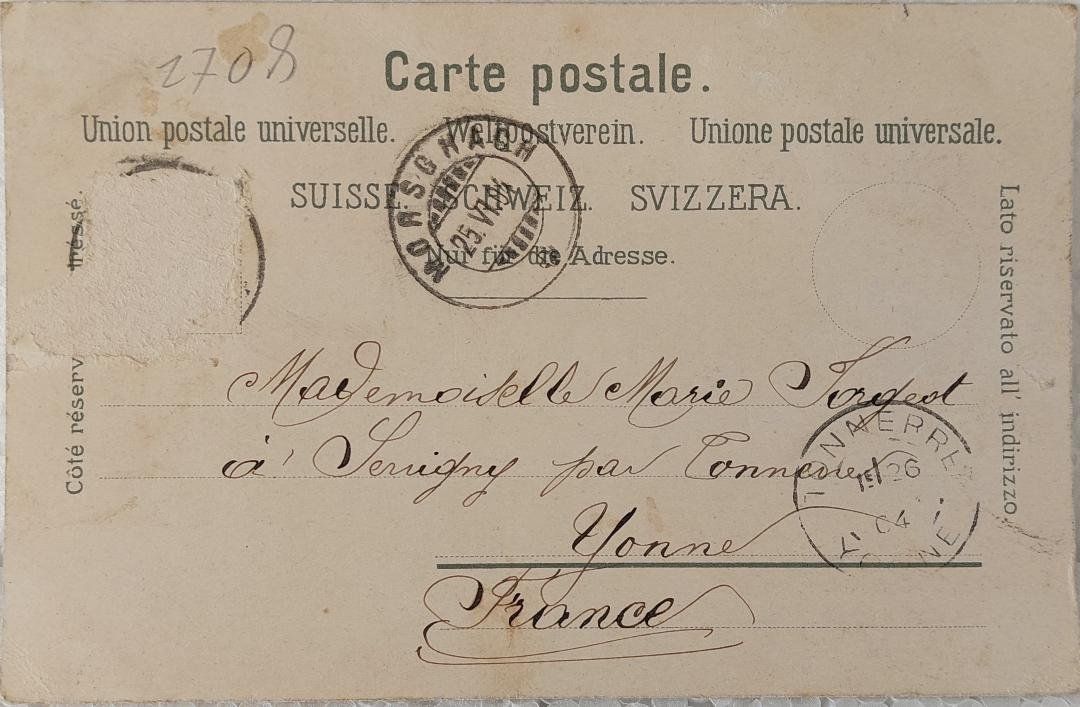 2708
Carte postale.
Union postale universelle. Weltpostverein. Unione postale universale.
SUISSE. SCHWEIZ. SVIZZERA.
Nur für die Adresse.
Côté réserv
Lato riservato all' indirizzo.
MORSCHACH
25.VI.
Mademoiselle Marie
à Serrigny par Tonnerre
Yonne
France
TONNERRE
26
04
YONNE